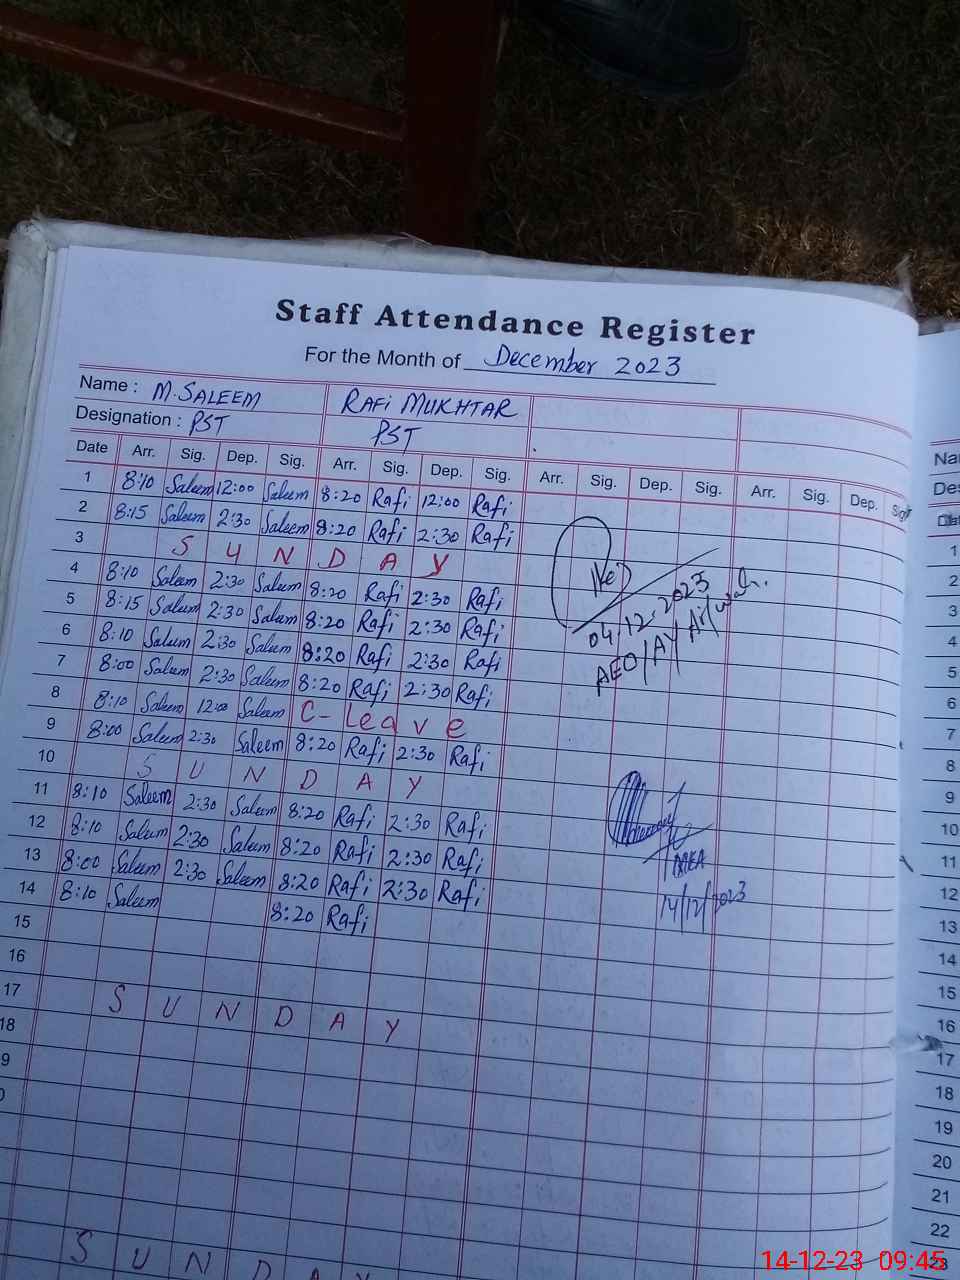 Staff Attendance Register
For the Month of December 2023
Name : M. SALEEM RAFI MUKHTAR
Designation : PST PST
Date Arr. Sig. Dep. Sig. Arr. Sig. Dep. Sig. Arr. Sig. Dep. Sig. Arr. Sig. Dep. Sig
1 8:10 Saleem 12:00 Saleem 8:20 Rafi 12:00 Rafi
2 8:15 Saleem 2:30 Saleem 8:20 Rafi 2:30 Rafi
3 SUNDAY
4 8:10 Saleem 2:30 Saleem 8:20 Rafi 2:30 Rafi
5 8:15 Saleem 2:30 Saleem 8:20 Rafi 2:30 Rafi
6 8:10 Saleem 2:30 Saleem 8:20 Rafi 2:30 Rafi
7 8:00 Saleem 2:30 Saleem 8:20 Rafi 2:30 Rafi
8 8:10 Saleem 12:00 Saleem C-Leave
9 8:00 Saleem 2:30 Saleem 8:20 Rafi 2:30 Rafi
10 SUNDAY
11 8:10 Saleem 2:30 Saleem 8:20 Rafi 2:30 Rafi
12 8:10 Saleem 2:30 Saleem 8:20 Rafi 2:30 Rafi
13 8:00 Saleem 2:30 Saleem 8:20 Rafi 2:30 Rafi
14 8:10 Saleem 8:20 Rafi
15
16
17 SUNDAY
18
9
0
SUNDAY
04.12.2023
AEO
MEA
14/12/2023
Na
Des
1
2
3
4
5
6
7
8
9
10
11
12
13
14
15
16
17
18
19
20
21
22
23
14-12-23 09:45